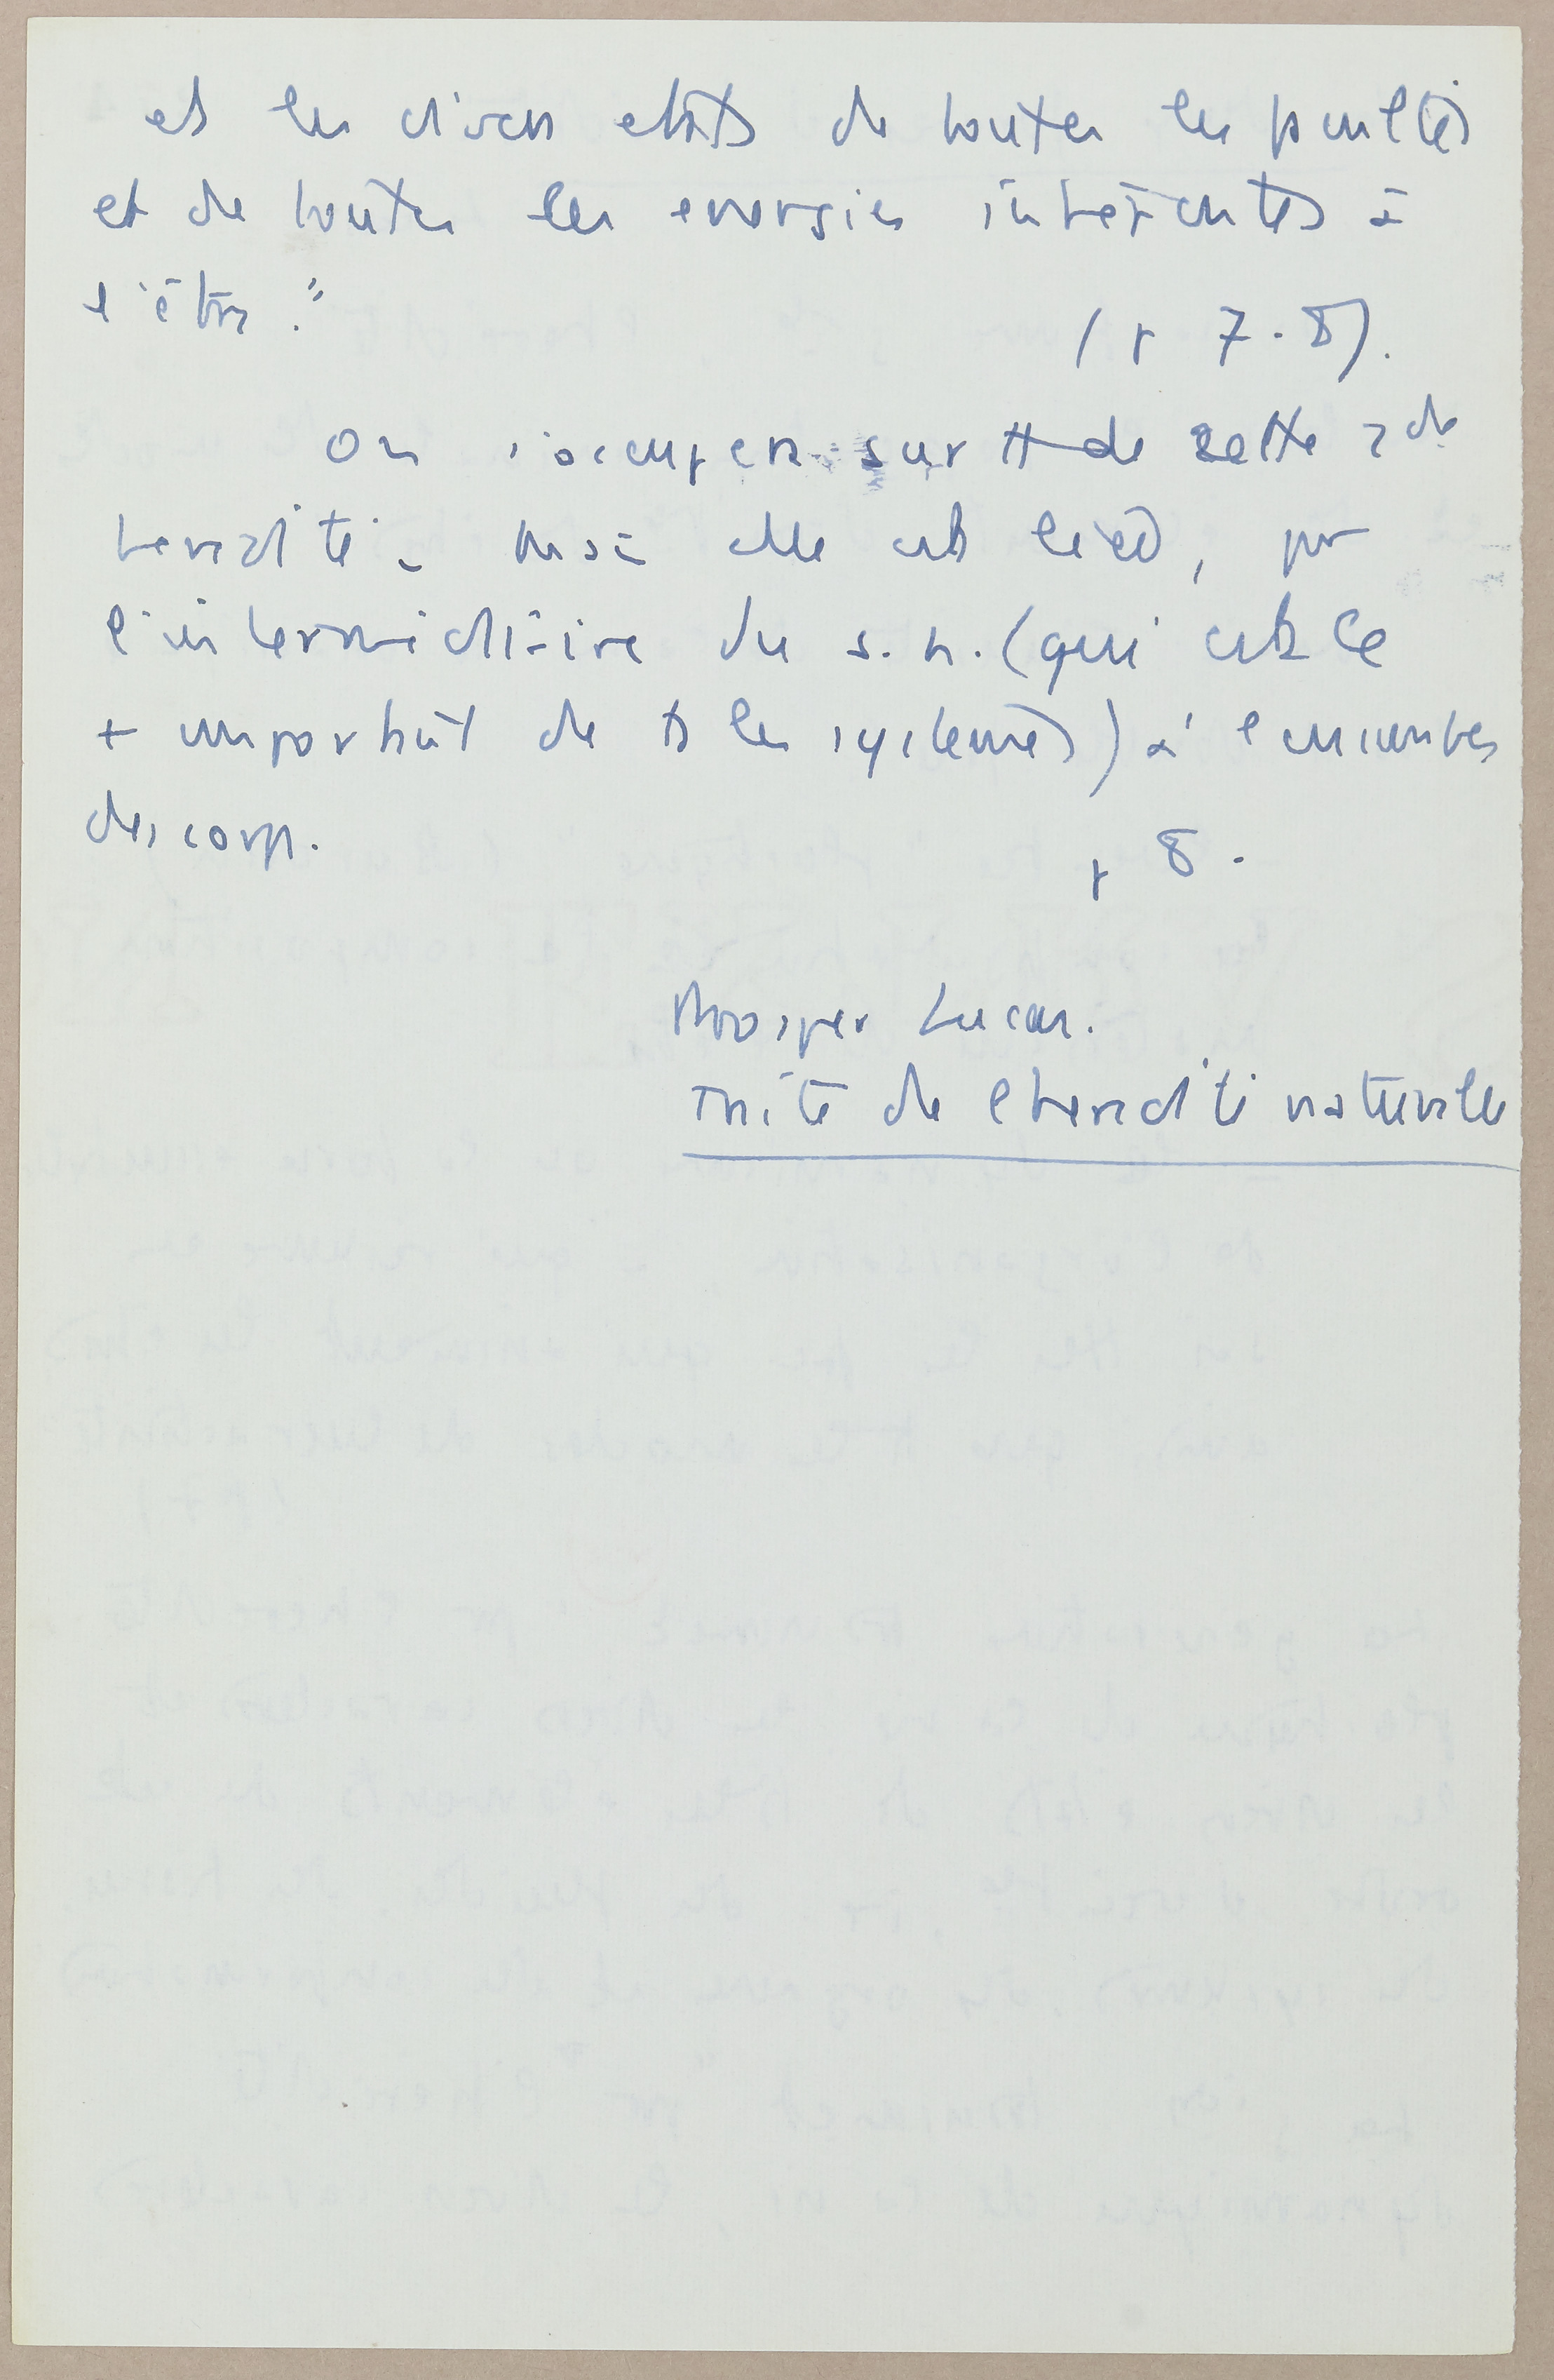 et les divers etats de toutes les facultés
et de toutes les energies inherentes à
l'être."
(p 7.8).
On s'occupera surtt de cette 2de
heredité. Mais elle est liée, par
l'intermédiaire du s. n. (qui est le
+ important de ts les systemes) à l'ensemble
des corps.
p 8.
Prosper Lucas.
Traité de l'heredité naturelle